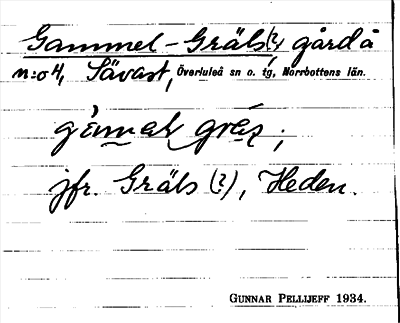 Gammel-Gräls(?), gård å
n:o 4, Sävast, Överluleå sn o. tg, Norrbottens län.
jfr. Gräls (?), Heden.
GUNNAR PELLIJEFF 1934.